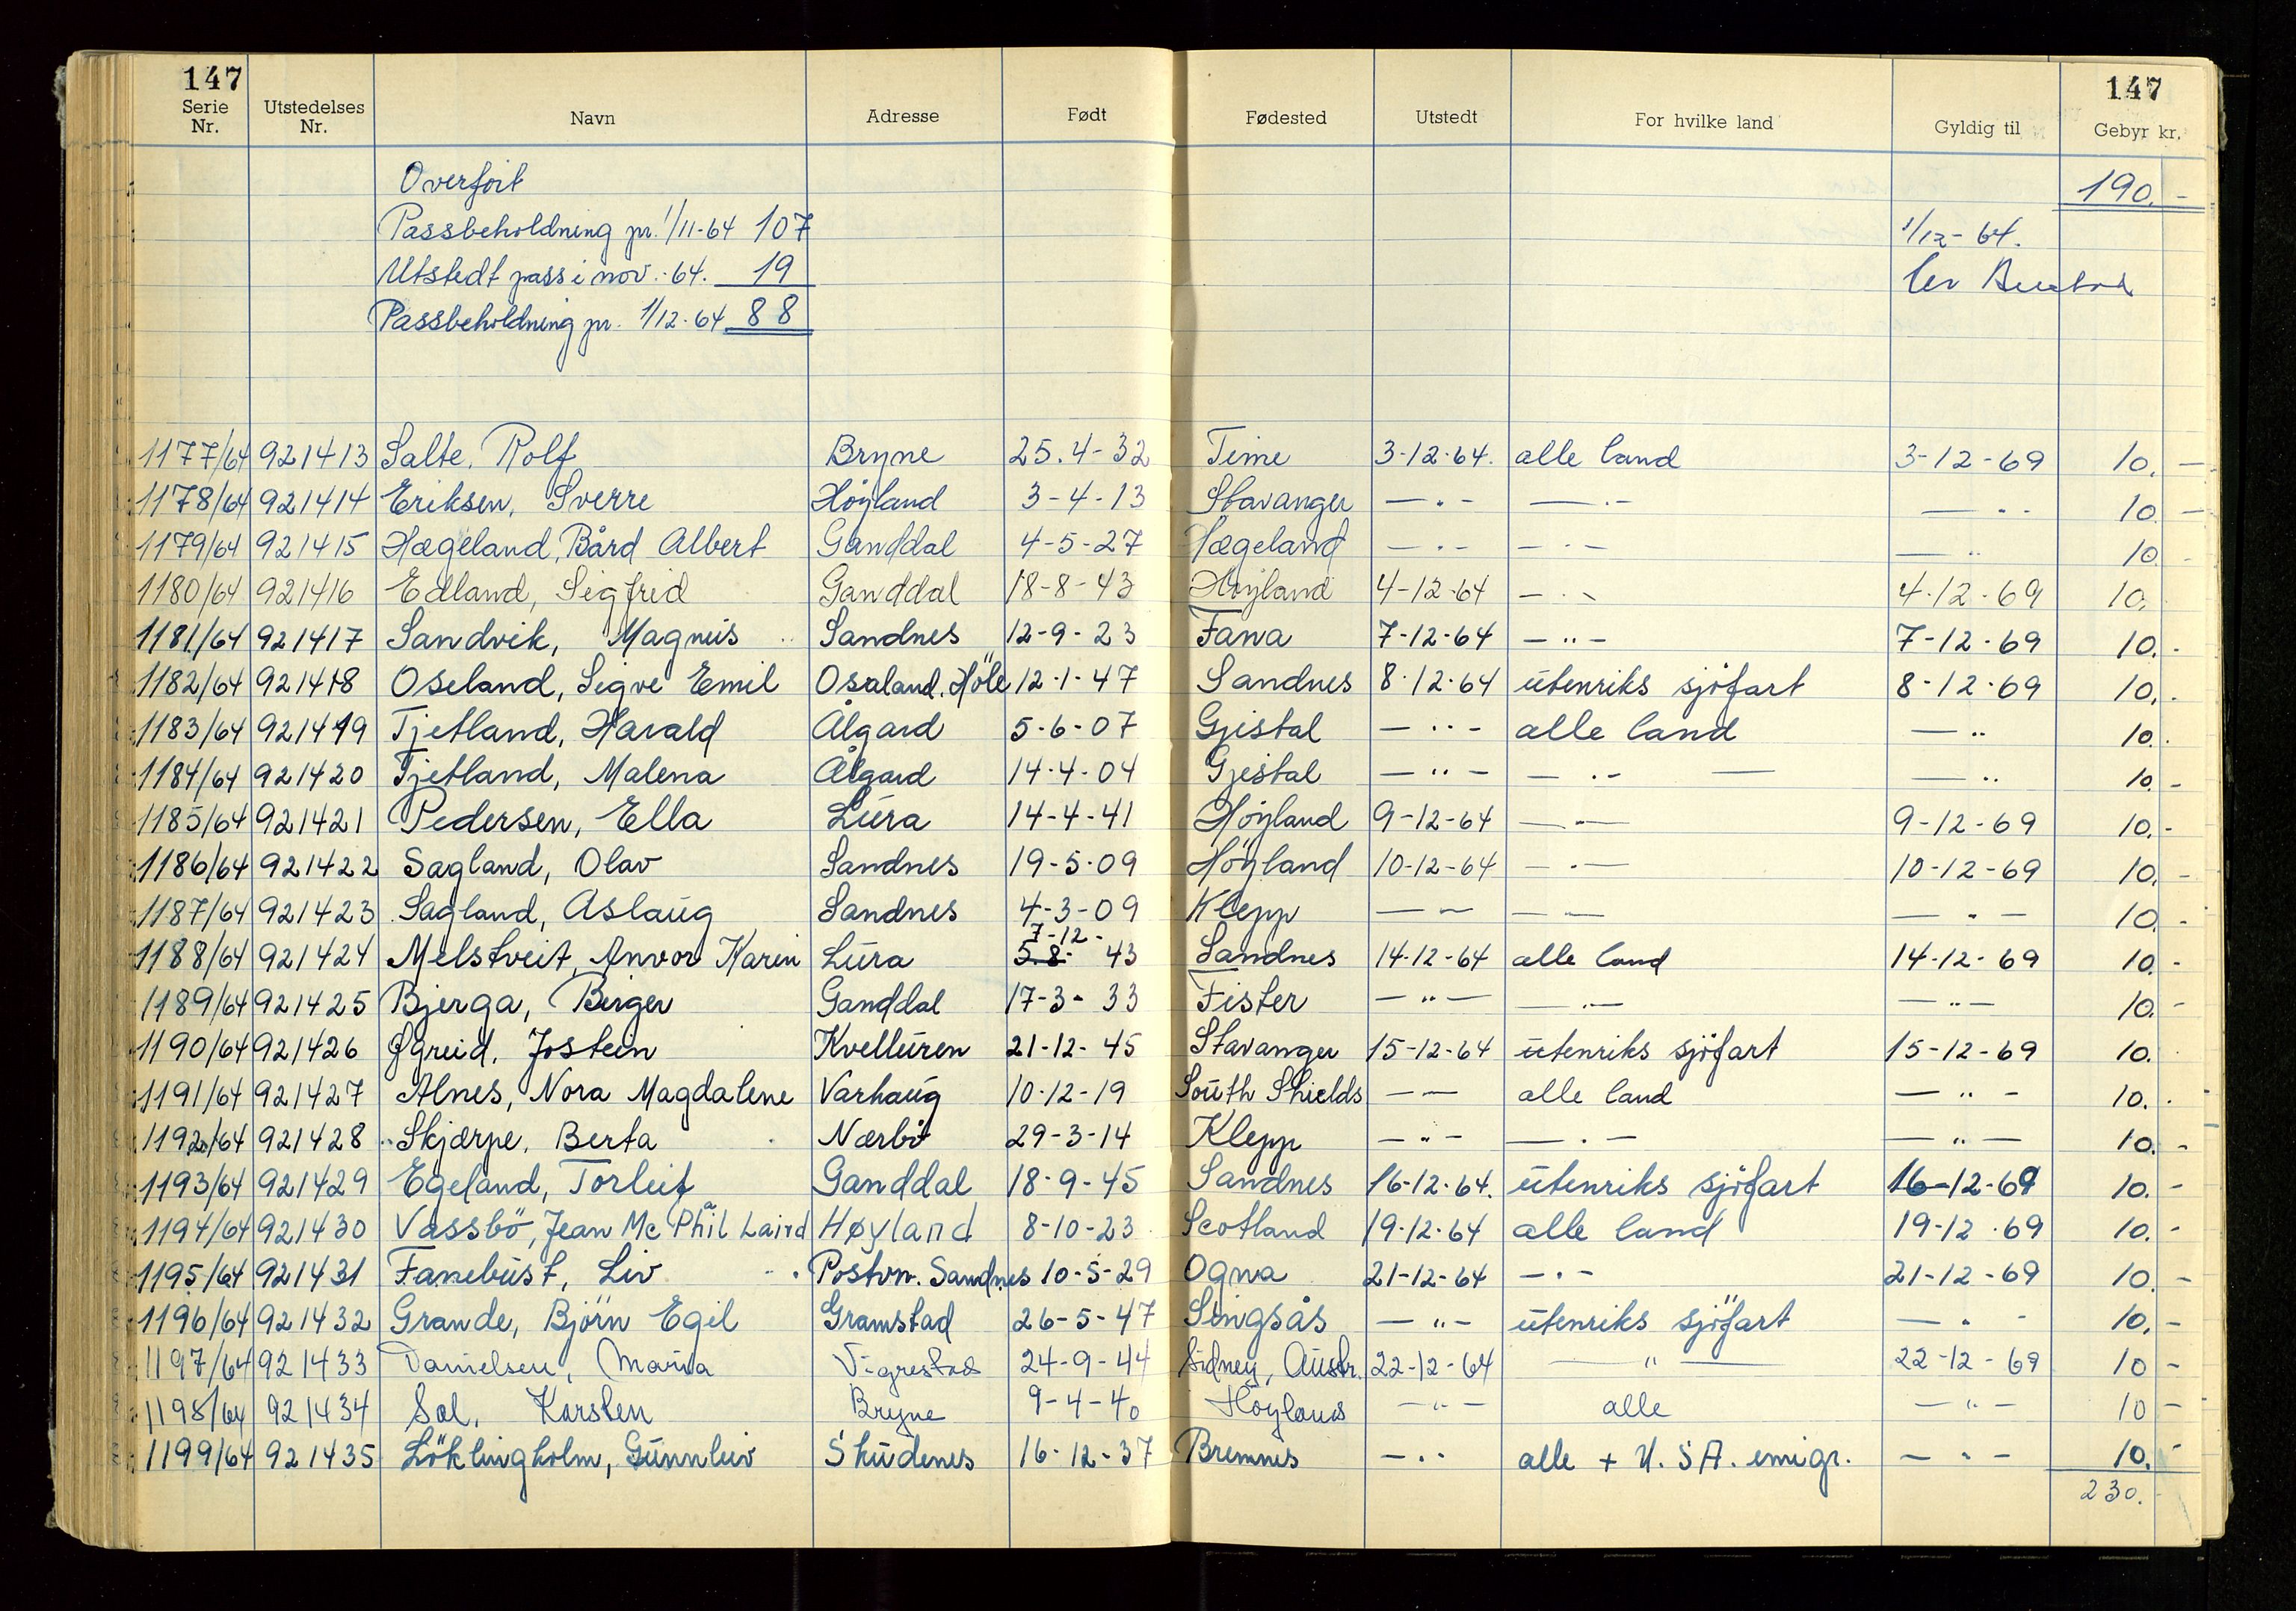 147 147
Serie Nr. Utstedelses Nr. Navn Adresse Født Fødested Utstedt For hvilke land Gyldig til Gebyr kr.
Overfört 190.-
Passbeholdning pr. 1/11-64 107 1/12-64.
Utstedt pass i nov.-64. 19
Passbeholdning pr. 1/12-64 88
1177/64 921413 Salte, Rolf Bryne 25.4-32 Time 3-12-64. alle land 3-12-69 10.-
1178/64 921414 Eriksen, Sverre Höyland 3-4-13 Stavanger —"— —"— —"— 10.-
1179/64 921415 Hægeland, Bård Albert Ganddal 4-5-27 Hægeland —"— —"— —"— 10.-
1180/64 921416 Edland, Sigfrid Ganddal 18-8-43 Höyland 4-12-64 —"— 4-12-69 10.
1181/64 921417 Sandvik, Magnus Sandnes 12-9-23 Fana 7-12-64 —"— 7-12-69 10.-
1182/64 921418 Oseland, Sigve Emil Osaland. Höle 12-1-47 Sandnes 8-12-64 utenriks sjöfart 8-12-69 10.-
1183/64 921419 Tjetland, Harald Ålgard 5-6-07 Gjestal —"— alle land —"— 10.-
1184/64 921420 Tjetland, Malena Ålgard 14-4-04 Gjestal —"— —"— —"— 10.-
1185/64 921421 Pedersen, Ella Lura 14-4-41 Höyland 9-12-64 —"— 9-12-69 10.-
1186/64 921422 Sagland, Olav Sandnes 19-5-09 Höyland 10-12-64 —"— 10-12-69 10.-
1187/64 921423 Sagland, Aslaug Sandnes 4-3-09 Klepp —"— —"— —"— 10.-
7-12-
1188/64 921424 Melstveit, Anvor Karin Lura 5-8- 43 Sandnes 14-12-64 alle land 14-12-69 10.-
1189/64 921425 Bjerga, Birger Ganddal 17-3-33 Fister —"— —"— —"— 10.-
1190/64 921426 Øgreid, Jostein Kvelluren 21-12-45 Stavanger 15-12-64 utenriks sjöfart 15-12-69 10.
1191/64 921427 Alnes, Nora Magdalene Varhaug 10-12-19 South Shields —"— alle land —"— 10.-
1192/64 921428 Skjærpe, Berta Nærbö 29-3-14 Klepp —"— —"— —"— 10.-
1193/64 921429 Egeland, Torleif Ganddal 18-9-45 Sandnes 16-12-64. utenriks sjöfart 16-12-69 10.-
1194/64 921430 Vassbö, Jean Mc Phail Laird Høyland 8-10-23 Scotland 19-12-64 alle land 19-12-69 10.-
1195/64 921431 Fanebust, Liv Postvn. Sandnes 10-5-29 Ogna 21-12-64 —"— 21-12-69 10.-
1196/64 921432 Grande, Björn Egil Gramstad 26-5-47 Singsås —"— utenriks sjöfart —"— 10.-
1197/64 921433 Danielsen, Maria Vigrestad 24-9-44 Sidney, Austr. 22-12-64 —"— 22-12-69 10 -
1198/64 921434 Sal, Karsten Bryne 9-4-40 Höyland —"— alle —"— 10 -
1199/64 921435 Löklingholm, Gunnleiv Skudenes 16-12-37 Bremnes —"— alle + U.S.A. emigr. —"— 10.-
230.-